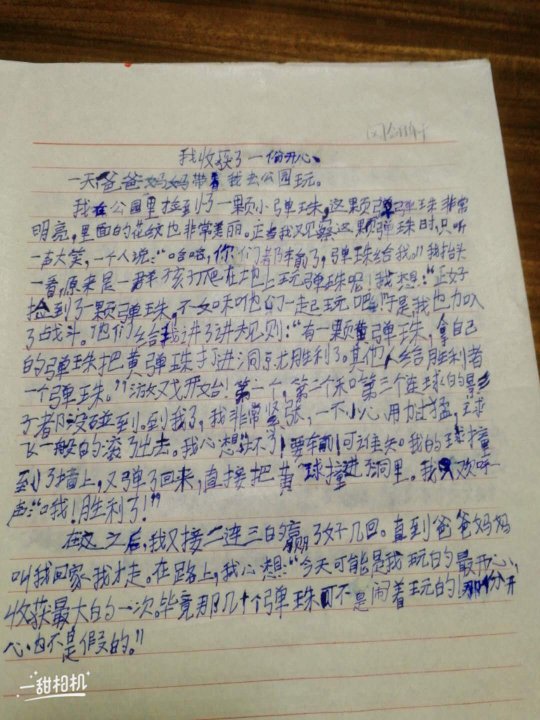 我收获了一份开心
一天爸爸妈妈带着我去公园玩。
我在公园里捡到了一颗小弹珠,这颗弹珠非常
明亮,里面的花纹也非常美丽。正当我观察这颗弹珠时,只听
一声大笑,一个人说:“哈哈,你们都输了,弹珠给我。”我抬头
一看,原来是一群孩子爬在地上玩弹珠呢!我想:“正好
捡到了一颗弹珠,不如和他们一起玩吧”于是我也加入
了战斗。他们给我讲了讲规则:“有一颗黄弹珠,拿自己
的弹珠把黄弹珠打进洞就胜利了。其他人给胜利者
一个弹珠。”游戏开始!第一个,第二个和第三个连球的影
子都没碰到。到我了,我非常紧张,一不小心用力过猛,球
飞一般的滚了出去。我心想坏了!要输!可谁知。我的球撞
到了墙上,又弹了回来,直接把黄球撞进洞里。我欢呼
声:“哦!胜利了!”
在这之后,我又接二连三的赢了好几回。直到爸爸妈妈
叫我回家我才走。在路上,我心想:“今天可能是我玩的最开心,
收获最大的一次,毕竟那几十个弹珠可不是闹着玩的!那份开
心也不是假的。”
一甜相机